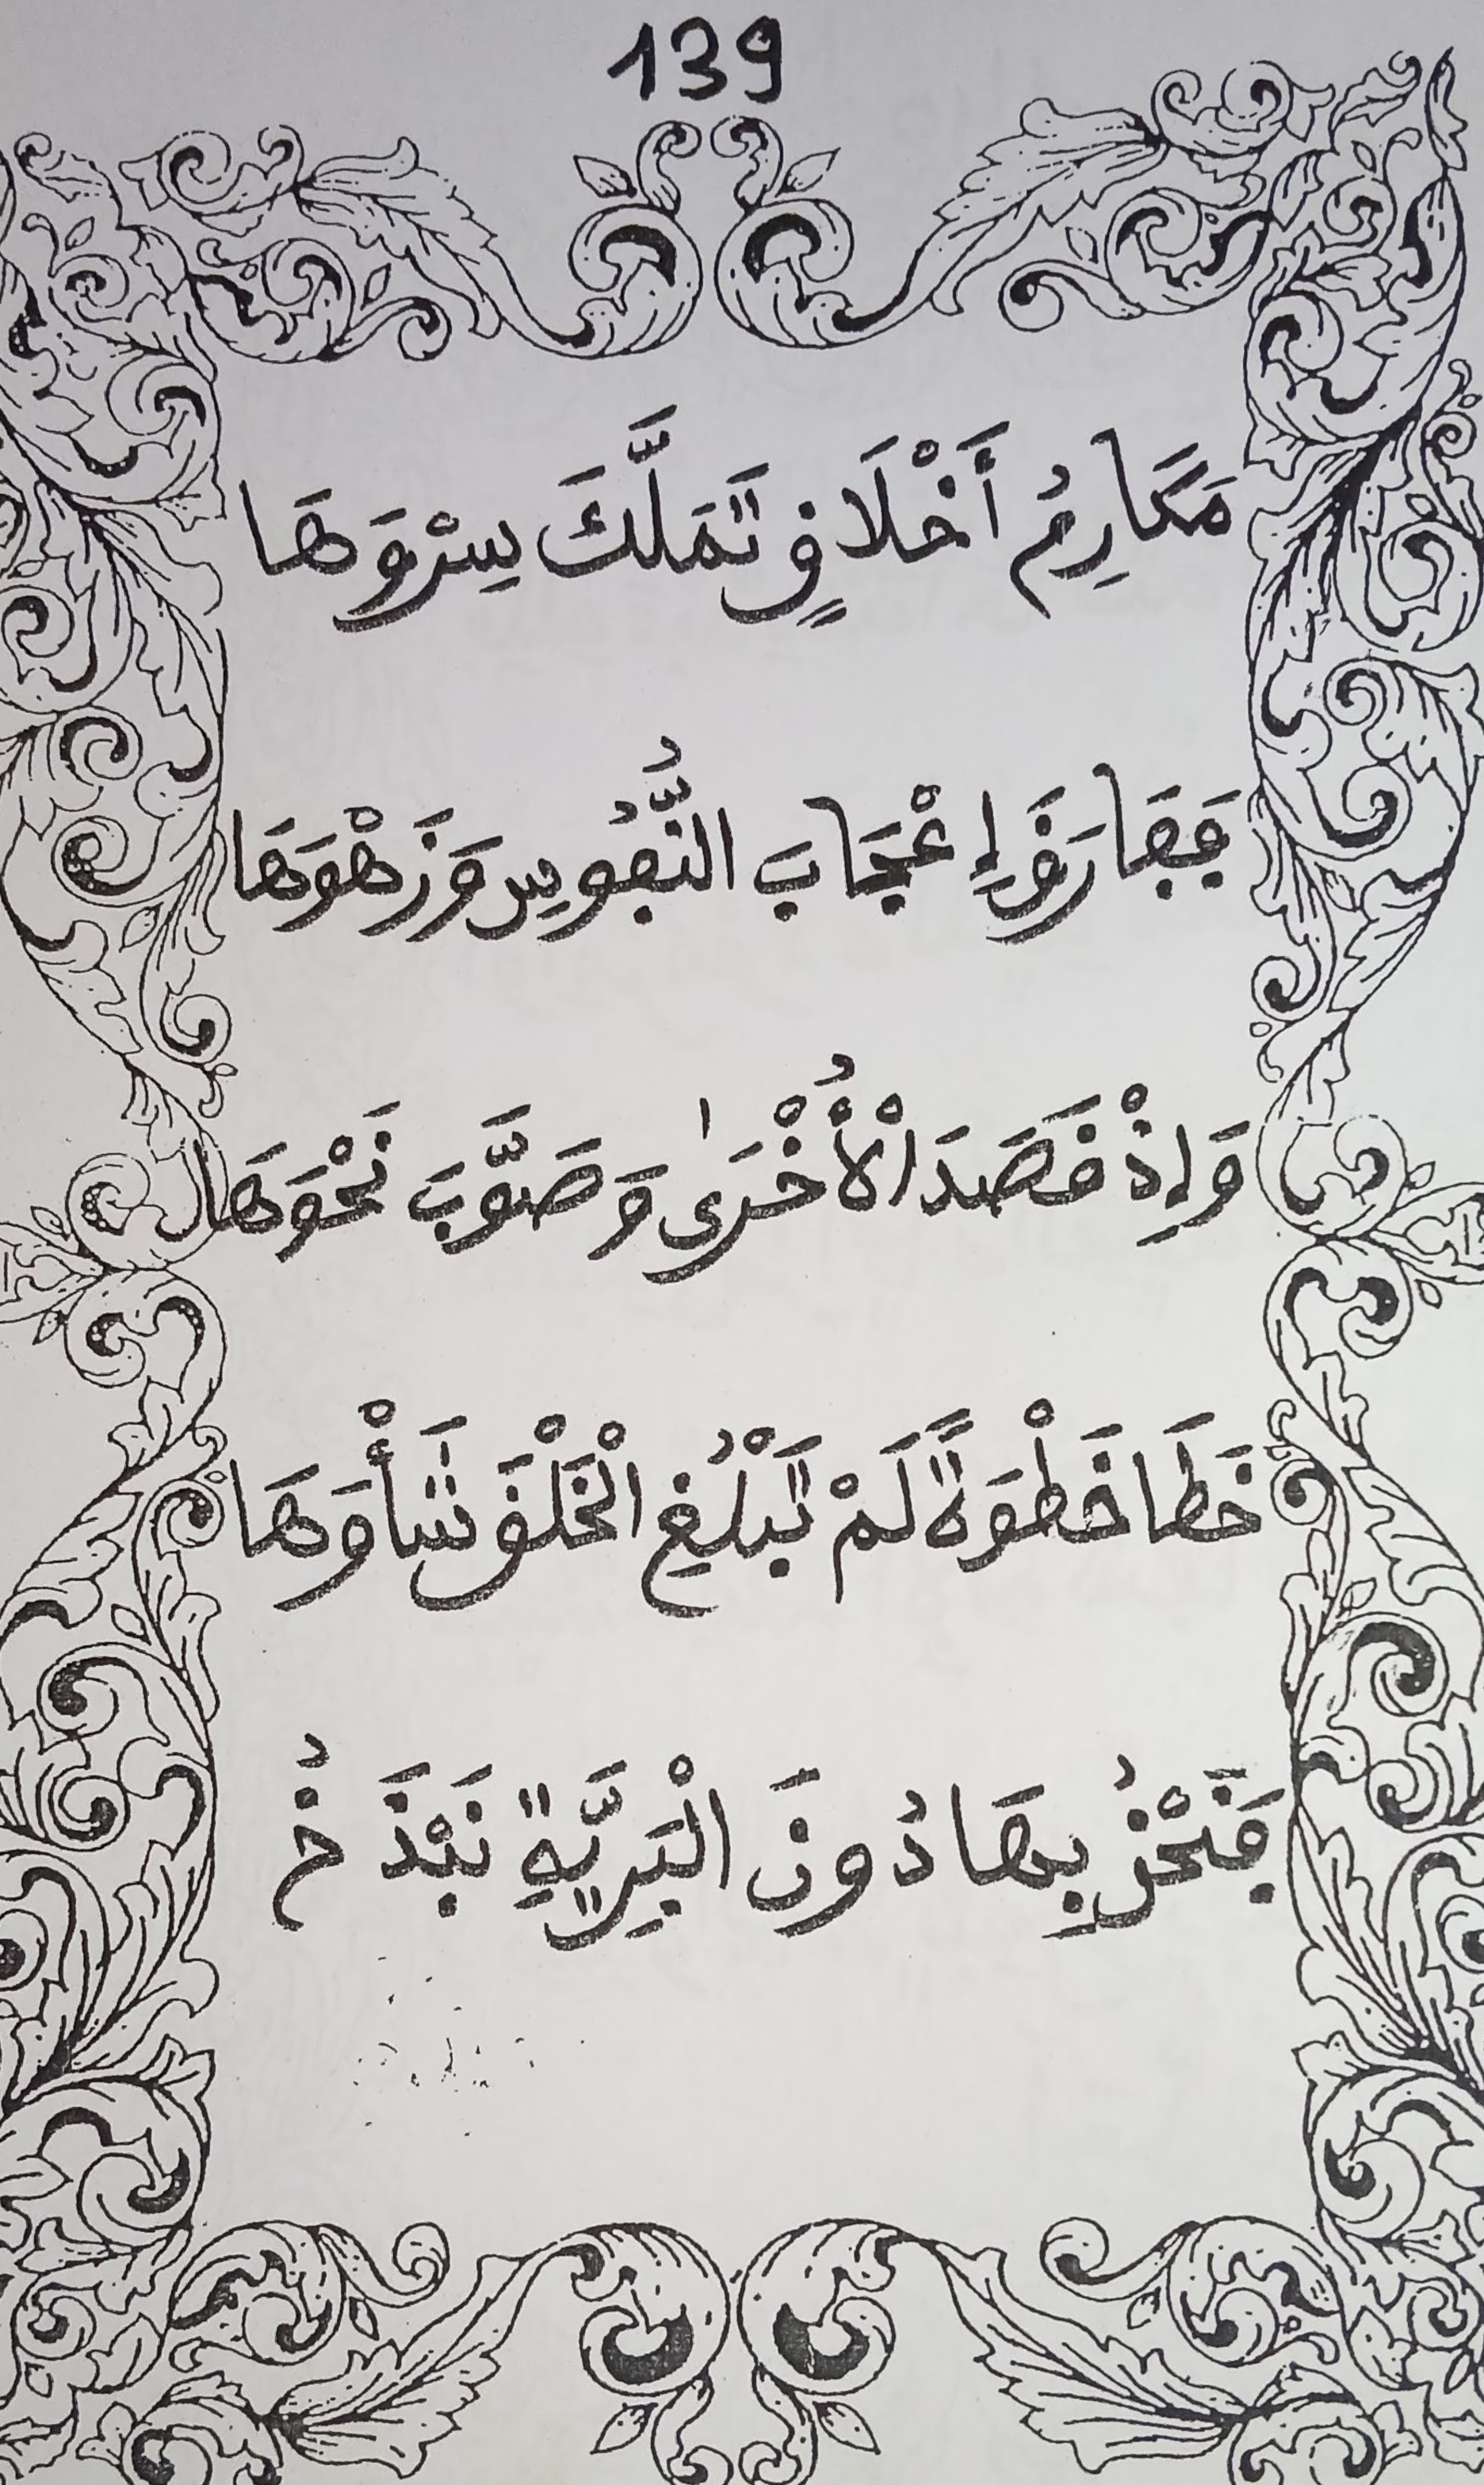 139
مَكَارِمُ أَخْلَاقٍ تَمَلَّكَ سرْوَهَا
فَفَارَقَ إِعْجَابَ النُّفُوسِ وَزَهْوَهَا
وَإِذْ قَصَدَ الْأُخْرَى وَصَوَّبَ نَحْوَهَا
خَطَا خَطْوَةً لَمْ يَبْلُغِ الْخَلْقَ شَأْوَهَا
فَنَحْنُ بِهَا دُونَ الْبَرِيَّةِ نَبْذَخُ